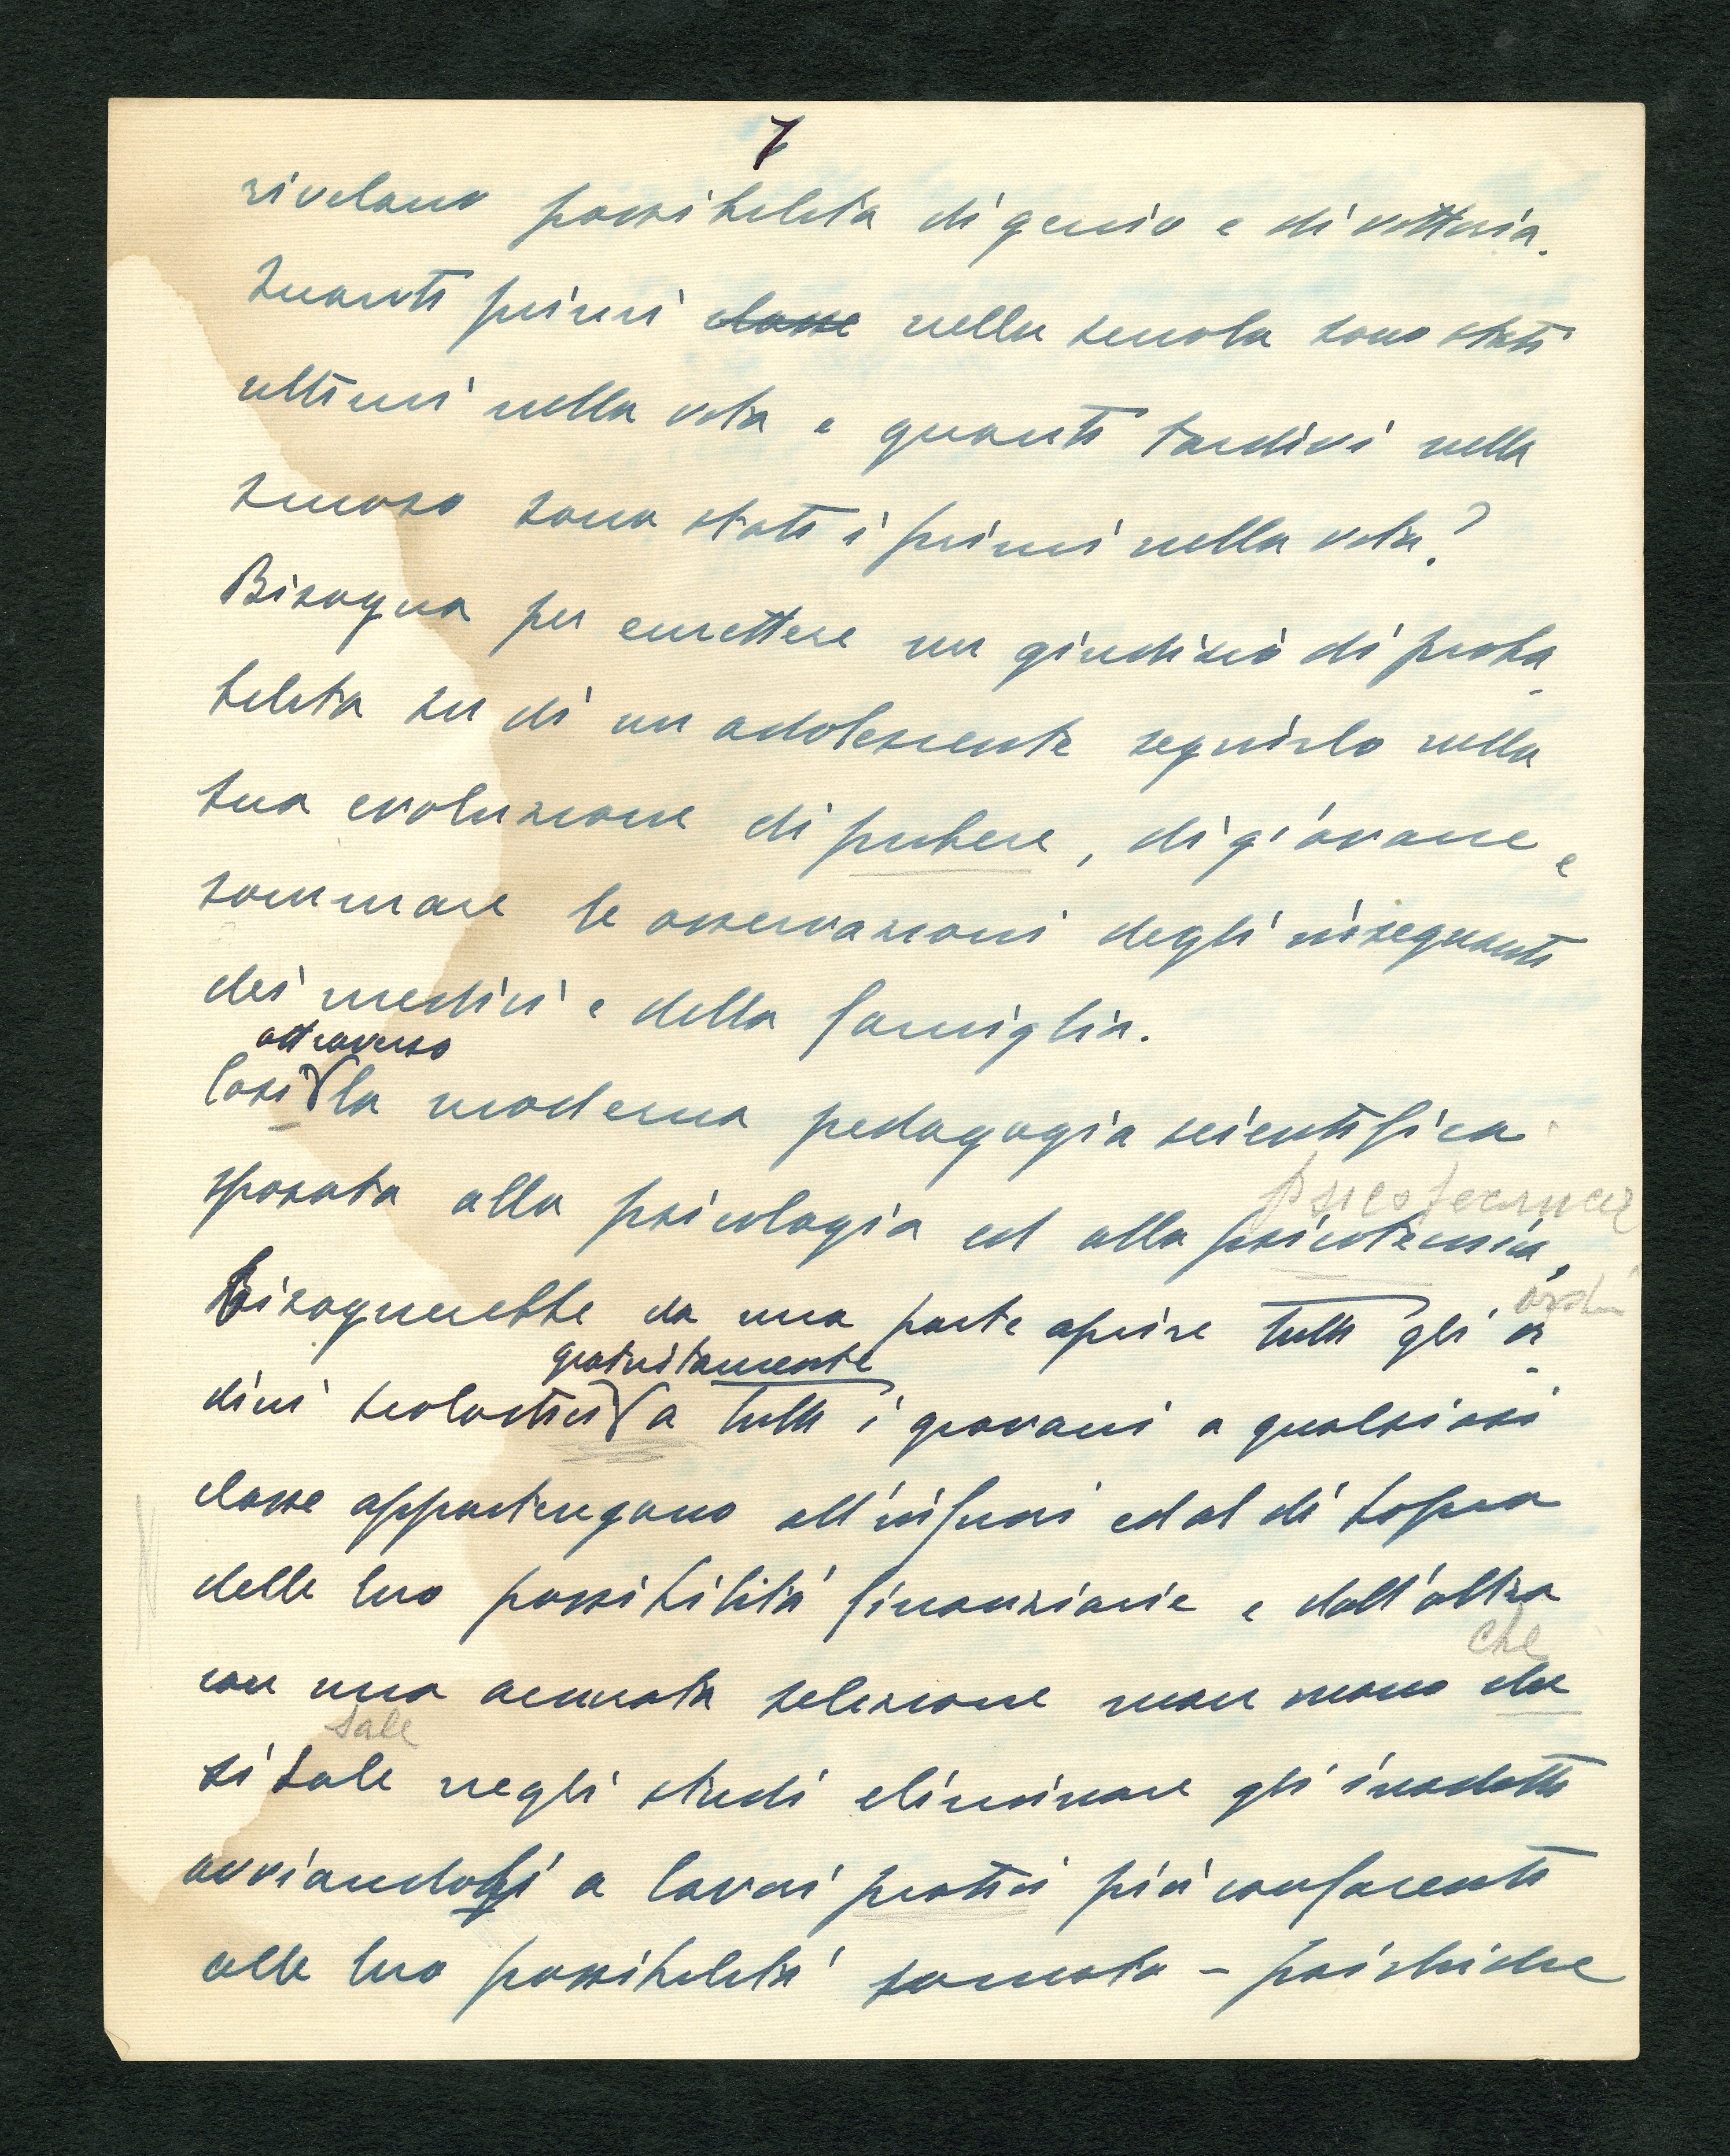 7
rivelano possibilità di genio e di vittoria.
Quanti primi classe nella scuola sono stati
ultimi nella vita e quanti tardivi nella
scuola sono stati i primi nella vita?
Bisogna per emettere un giudizio di proba-
bilità su di un adolescente seguirlo nella
sua evoluzione di pubere, di giovane e
sommare le osservazioni degli insegnanti
dei medici e della famiglia.
attraverso
Così la moderna pedagogia scientifica
psicotecnica
sposata alla psicologia ed alla psicotecnia,
ordi
Bisognerebbe da una parte aprire tutti gli or-
gratuitamente
dini scolastici a tutti i giovani a qualsiasi
classe appartengano all'infuori ed al di sopra
delle loro possibilità finanziarie e dall'altra
che
con una accurata selezione man mano che
sale
si sale negli studi eliminare gli inadatti
avviandoli a lavori pratici più confacenti
alle loro possibilità somato - psichiche